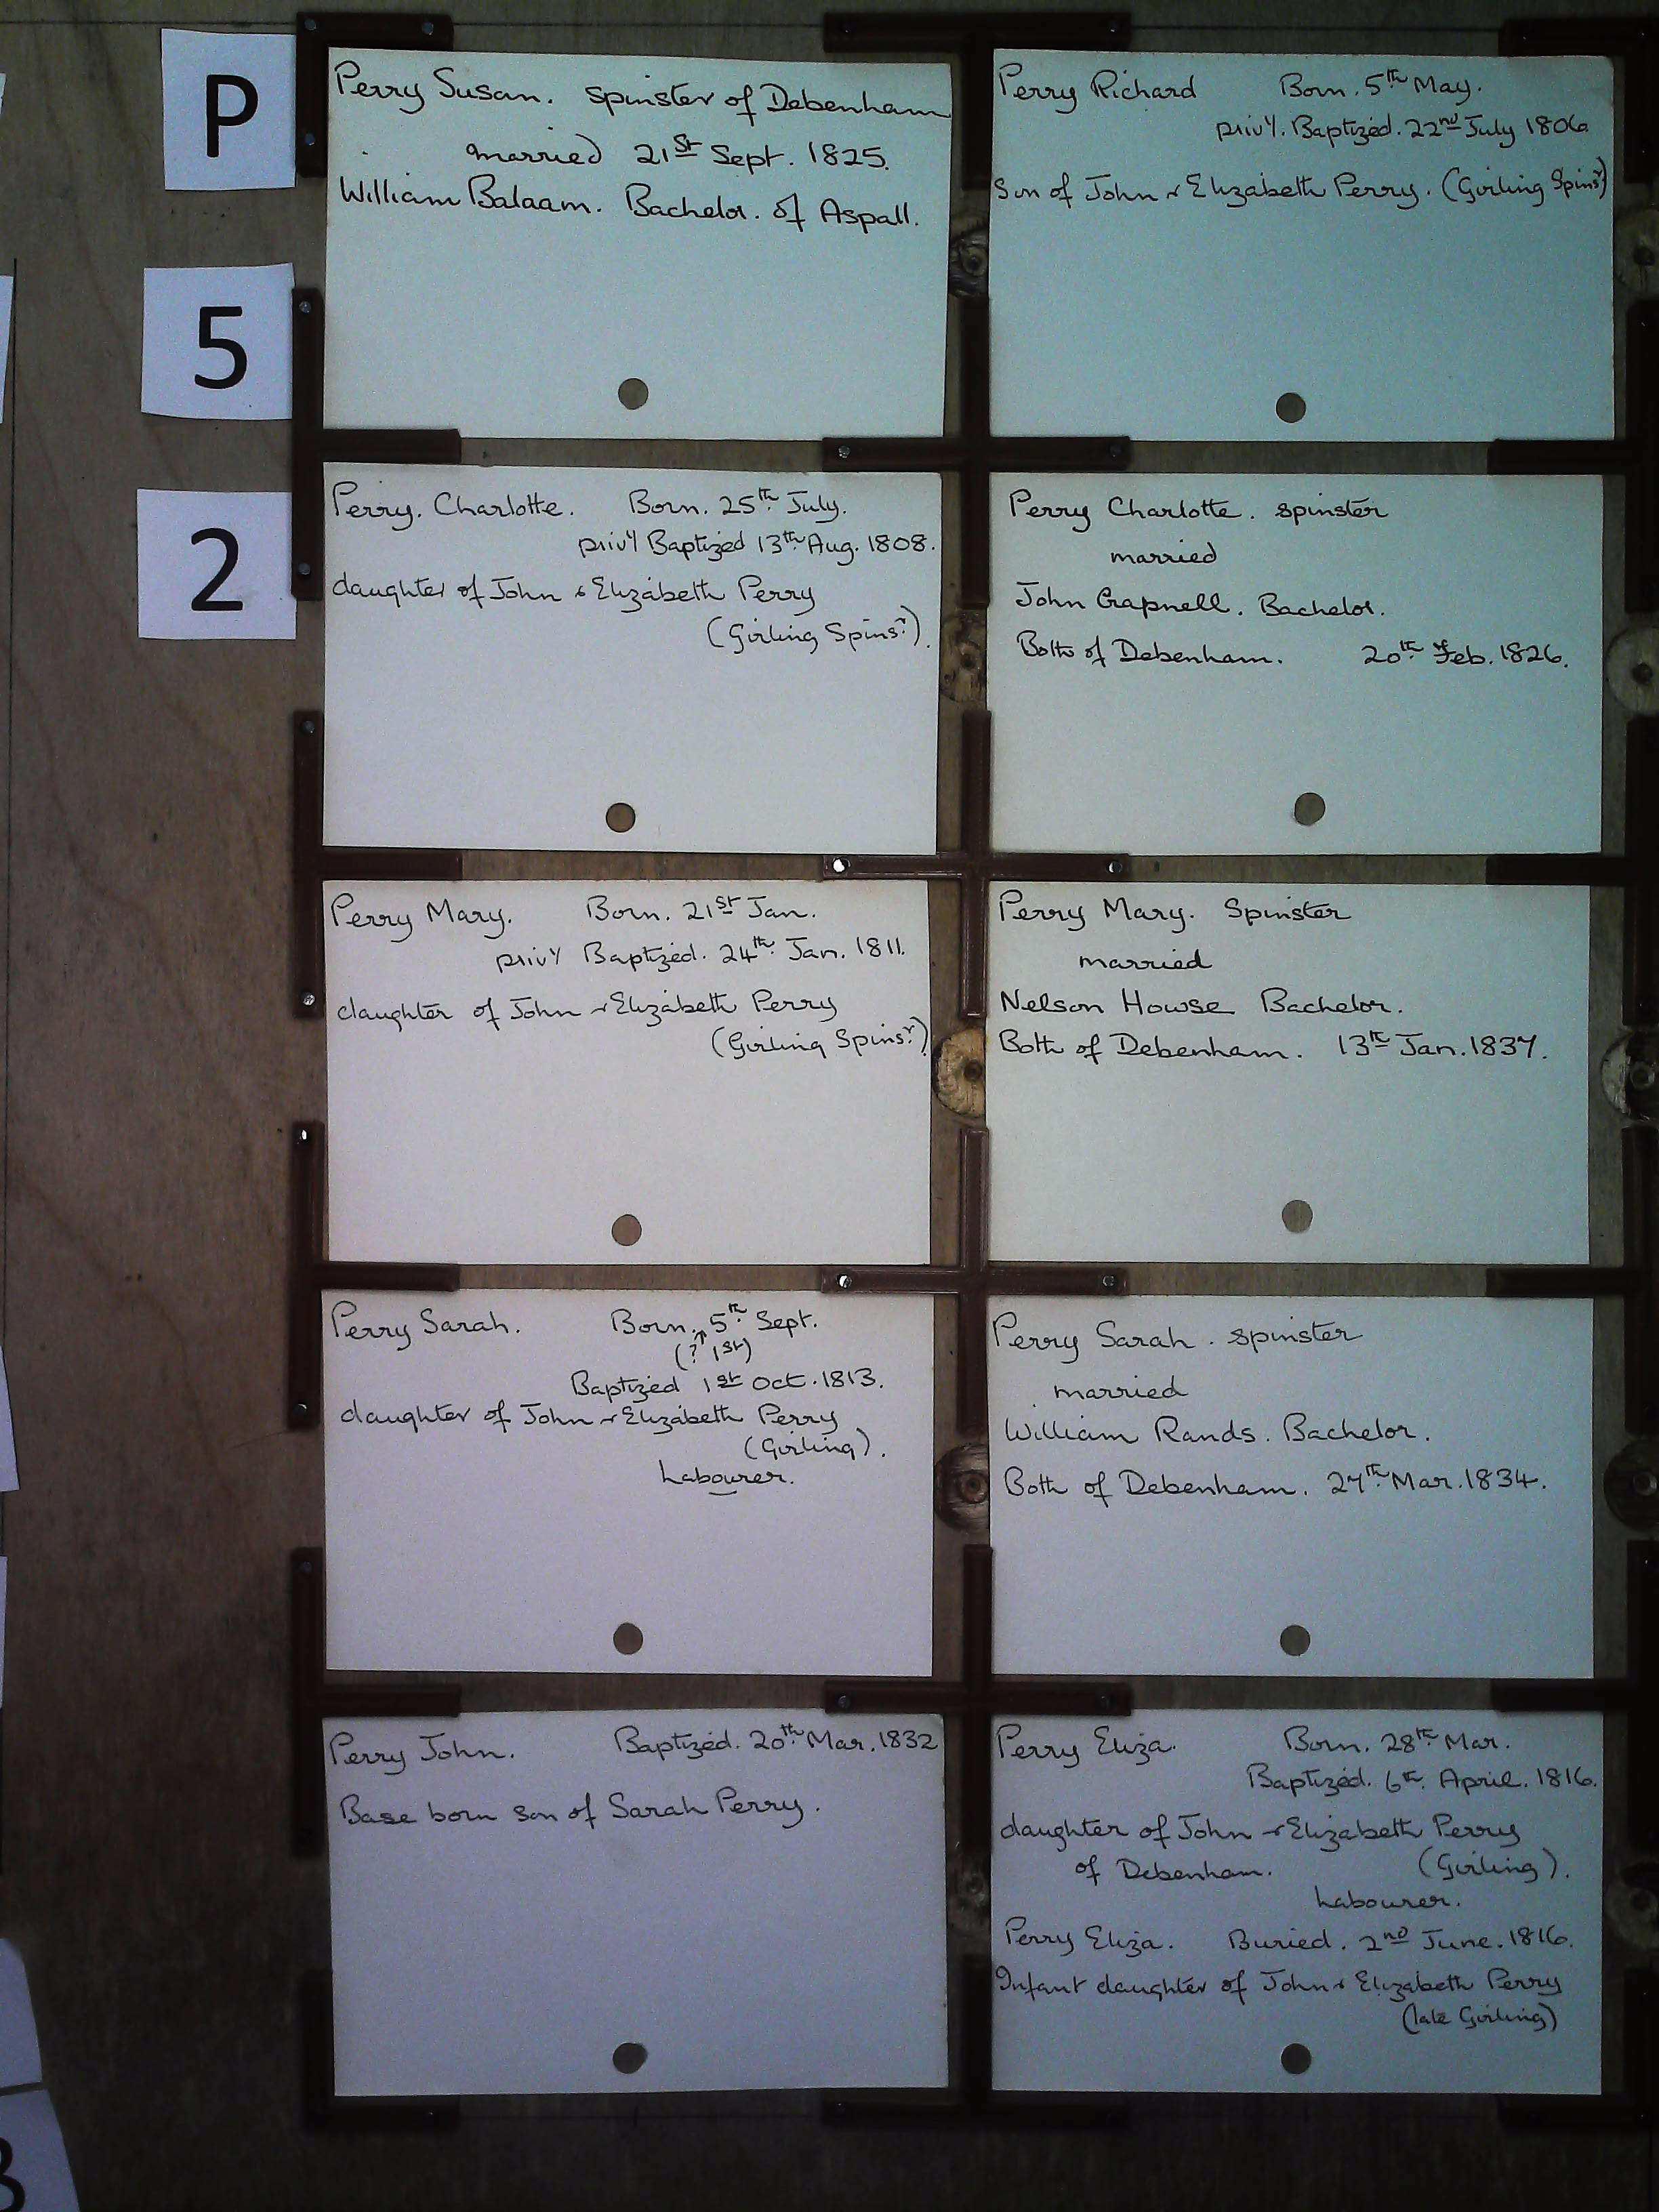 P
5
2
Perry Susan. Spinster of Debenham
married 21st Sept. 1825.
William Balaam. Bachelor. of Aspall.
Perry Richard Born. 5th May.
privy. Baptized. 22nd July 1806
Son of John & Elizabeth Perry. (Girling Spinsr)
Perry. Charlotte. Born. 25th July.
privy Baptized 13th Aug. 1808.
daughter of John & Elizabeth Perry
(Girling Spinsr).
Perry Charlotte. spinster
married
John Grapnell. Bachelor.
Both of Debenham. 20th Feb. 1826.
Perry Mary. Born. 21st Jan.
privy Baptized. 24th Jan. 1811.
daughter of John & Elizabeth Perry
(Girling Spinsr).
Perry Mary. Spinster
married
Nelson Howse Bachelor.
Both of Debenham. 13th Jan. 1837.
Perry Sarah. Born. 5th Sept.
(? 1st)
Baptized 1st Oct. 1813.
daughter of John & Elizabeth Perry
(Girling).
Labourer.
Perry Sarah. spinster
married
William Rands. Bachelor.
Both of Debenham. 27th Mar. 1834.
Perry John. Baptized. 20th Mar. 1832
Base born son of Sarah Perry.
Perry Eliza. Born. 28th Mar.
Baptized. 6th April. 1816.
daughter of John & Elizabeth Perry
of Debenham. (Girling).
Labourer.
Perry Eliza. Buried. 2nd June. 1816.
Infant daughter of John & Elizabeth Perry
(late Girling)